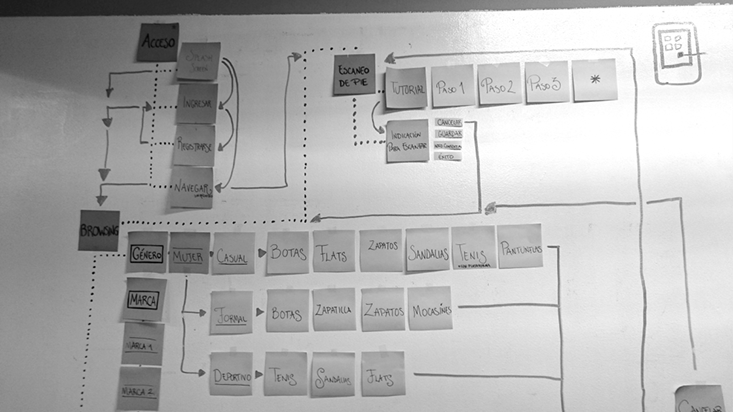 ACCESO
INGRESAR
REGISTRARSE
NAVEGAR
ESCANEO
DE PIE
TUTORIAL
PASO 1
PASO 2
PASO 3
*
INDICACIÓN
PARA ESCANEAR
CANCELAR
GUARDAR
ÉXITO
BROWSING
GÉNERO
MUJER
CASUAL
BOTAS
FLATS
ZAPATOS
SANDALIAS
TENIS
PANTUNFLAS
MARCA
FORMAL
BOTAS
ZAPATILLA
ZAPATOS
MOCASINES
MARCA 1
DEPORTIVO
TENIS
SANDALIAS
FLATS
MARCA 2
CANCELAR